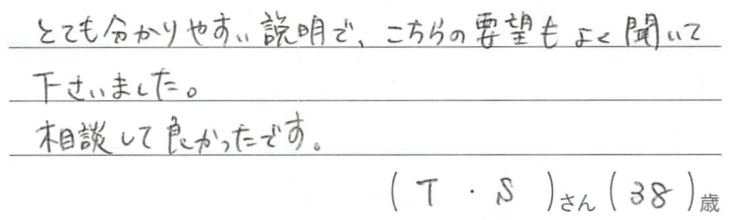 とても分かりやすい説明で、こちらの要望もよく聞いて
下さいました。
相談して良かったです。
(T・S)さん(38)歳